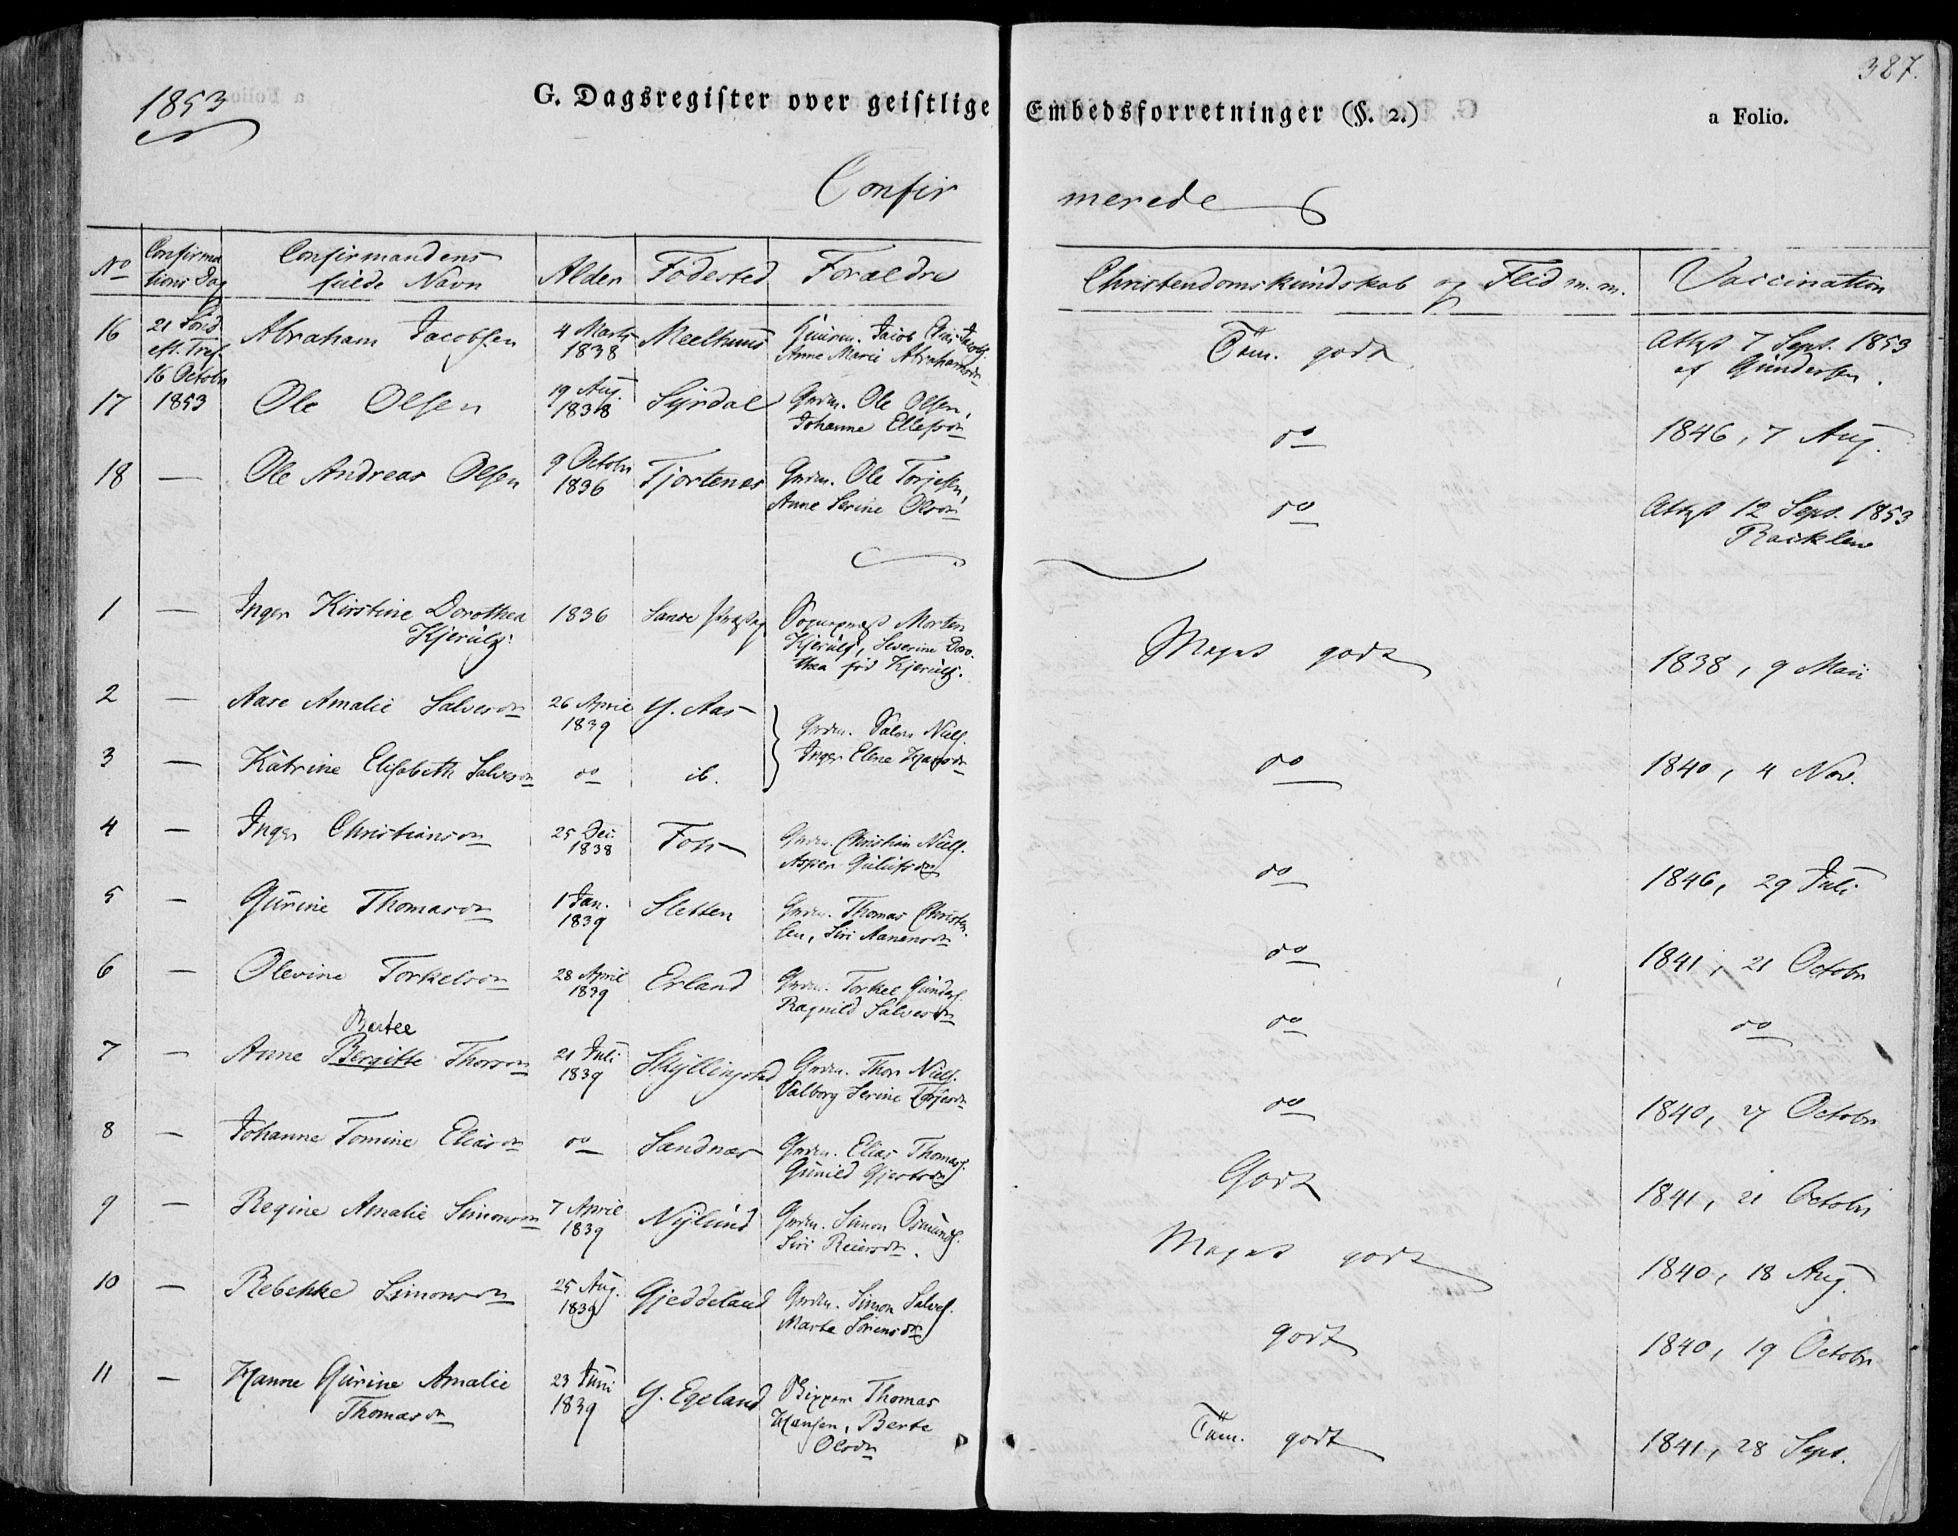 387.
1853
G. Dagsregister over geistlige Embedsforretninger (§. 2.)
a Folio.
Confirmerede
No Confirmations Dag Confirmandens fulde Navn Alder Fødested Forældre Christendomskundskab og Flid m. m. Vaccination
16 21 Sønd. eft. Tref. 16 Octobr 1853 Abraham Jacobsen 4 Marts 1838 Meelhuus Jacob Jacobs. Anne Marie Abrahamsdr Tem. godt Attest 7 Sept. 1853 af Gundersen.
17 Ole Olsen 19 Aug. 1838 Syrdal Grdm. Ole Olsen, Johanne Ellefsdr do 1846, 7 Aug.
18 — Ole Andreas Olsen 9 Octobr 1836 Fjortenæs Grdm. Ole Torjesen, Anne Serine Olsdr do Attest 12 Sept. 1853
1 — Inger Kirstine Dorothea Kjerulf 1836 Sande Sogneprest Morten Kjerulf, Severine Dorothea fød Kjerulf. Meget godt 1838, 9 Mai
2 — Aase Amalie Salvesdr 26 April 1839 Y. Aas Grdm. Salve Niels. Inger Elene Hansdr
3 — Katrine Elisabeth Salvesdr do ib. do 1840, 4 Nov.
4 — Inger Christiansdr 25 Dec. 1838 Foss Grdm. Christian Niels. Asper Gulufsdr do 1846, 29 Juli
5 — Gurine Thomasdr 1 Jan. 1839 Sletten Grdm. Thomas Christensen, Siri Aanensdr do 1841, 21 Octobr
6 — Olevine Torkelsdr 28 April 1839 Erland Grdm. Torkel Gunders. Ragnild Salvesdr do do
Bertee
7 — Anne Bergitte Thorsdr 21 Juli 1839 Skyllingstad Grdm. Thor Niels. Valborg Serine Torjesdr do 1840, 27 Octobr
8 — Johanne Tomine Eliasdr do Sandnæs Grdm. Elias Thomas. Gunild Gjertsdr Godt 1841, 21 Octobr
9 — Regine Amalie Simonsdr 7 April 1839 Nylund Grdm. Simon Osmunds. Siri Reiersdr. Meget godt 1840, 18 Aug.
10 — Rebekke Simonsdr 25 Aug. 1839 Gjeddeland Grdm. Simon Salves. Marte Sørensdr godt 1840, 19 Octobr
11 — Hanne Gurine Amalie Thomasdr 23 Juni 1839 Y. Egeland Skipper Thomas Hansen, Berte Olsdr Tem. godt 1841, 28 Sept.